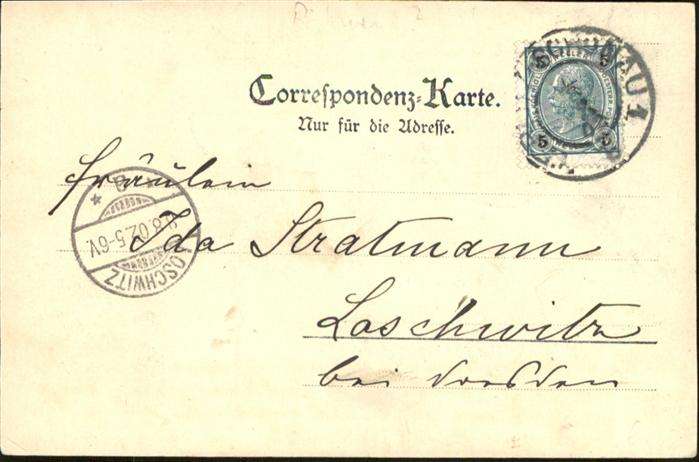 Correspondenz-Karte.
Nur für die Adresse.
5 5
5 5
Fräulein
Ida Stratmann
Loschwitz
bei Dresden
LOSCHWITZ
02.5-6V